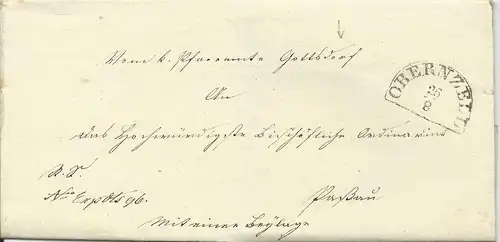 Vom k. Pfarramte Gottsdorf
OBERNZELL
26
8
An
das Hochwürdigste Bischöfliche Ordinariat
R. S.
Nro Exp 96.
Paßau
Mit einer Beylage